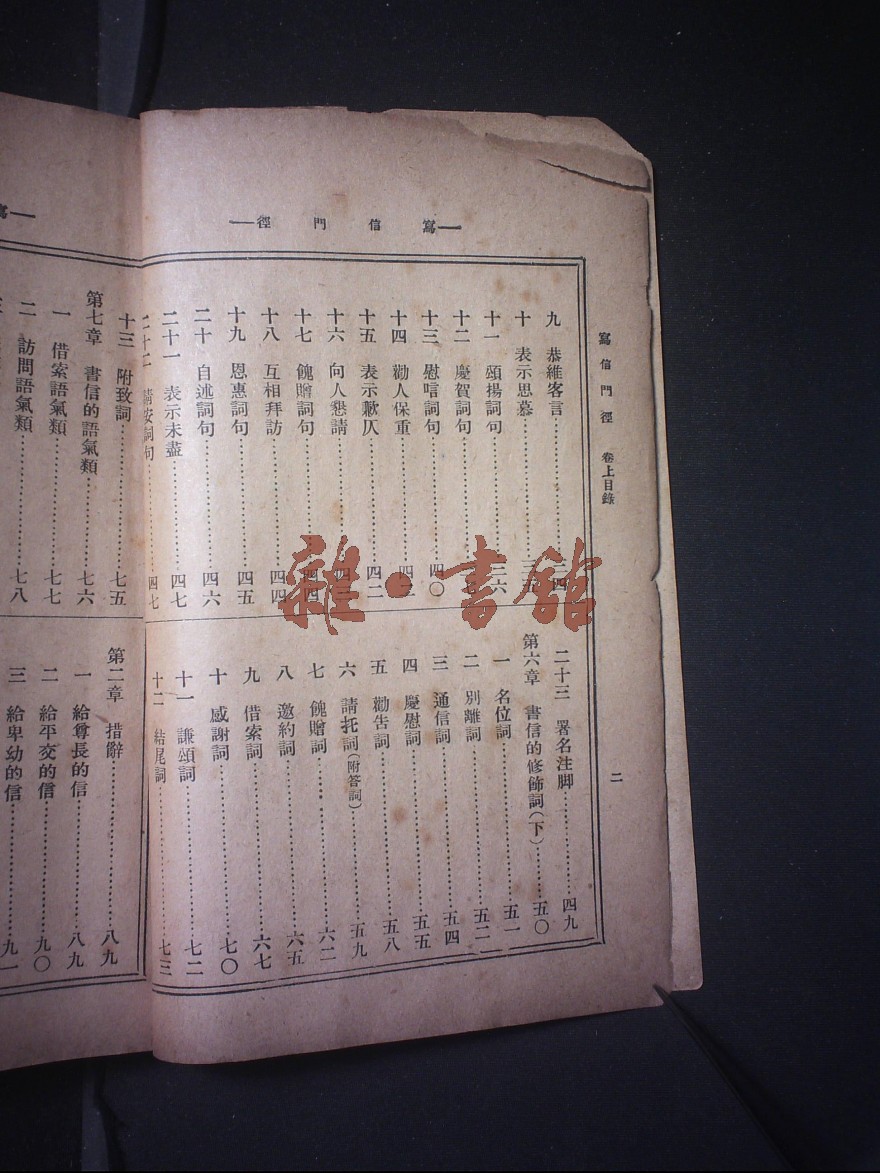 寫信門徑
寫信門徑 卷上目錄
二
九 恭維客言
十 表示思慕
十一 頌揚詞句
十二 慶賀詞句
十三 慰唁詞句……四〇
十四 勸人保重
十五 表示歉仄……四二
十六 向人懇請
十七 餽贈詞句
十八 互相拜訪……四四
十九 恩惠詞句……四五
二十 自述詞句……四六
二十一 表示未盡……四七
二十二 請安詞句……四七
二十三 署名注脚……四九
第六章 書信的修飾詞(下)……五〇
一 名位詞……五一
二 別離詞……五二
三 通信詞……五四
四 慶慰詞……五五
五 勸告詞……五八
六 請托詞(附答詞)……五九
七 餽贈詞……六二
八 邀約詞……六五
九 借索詞……六七
十 感謝詞……七〇
十一 謙頌詞……七二
十二 結尾詞……七三
寫
十三 附致詞……七五
第七章 書信的語氣類……七六
一 借索語氣類……七七
二 訪問語氣類……七八
第二章 措辭……八九
一 給尊長的信……八九
二 給平交的信……九〇
三 給卑幼的信……九一
雜·書館